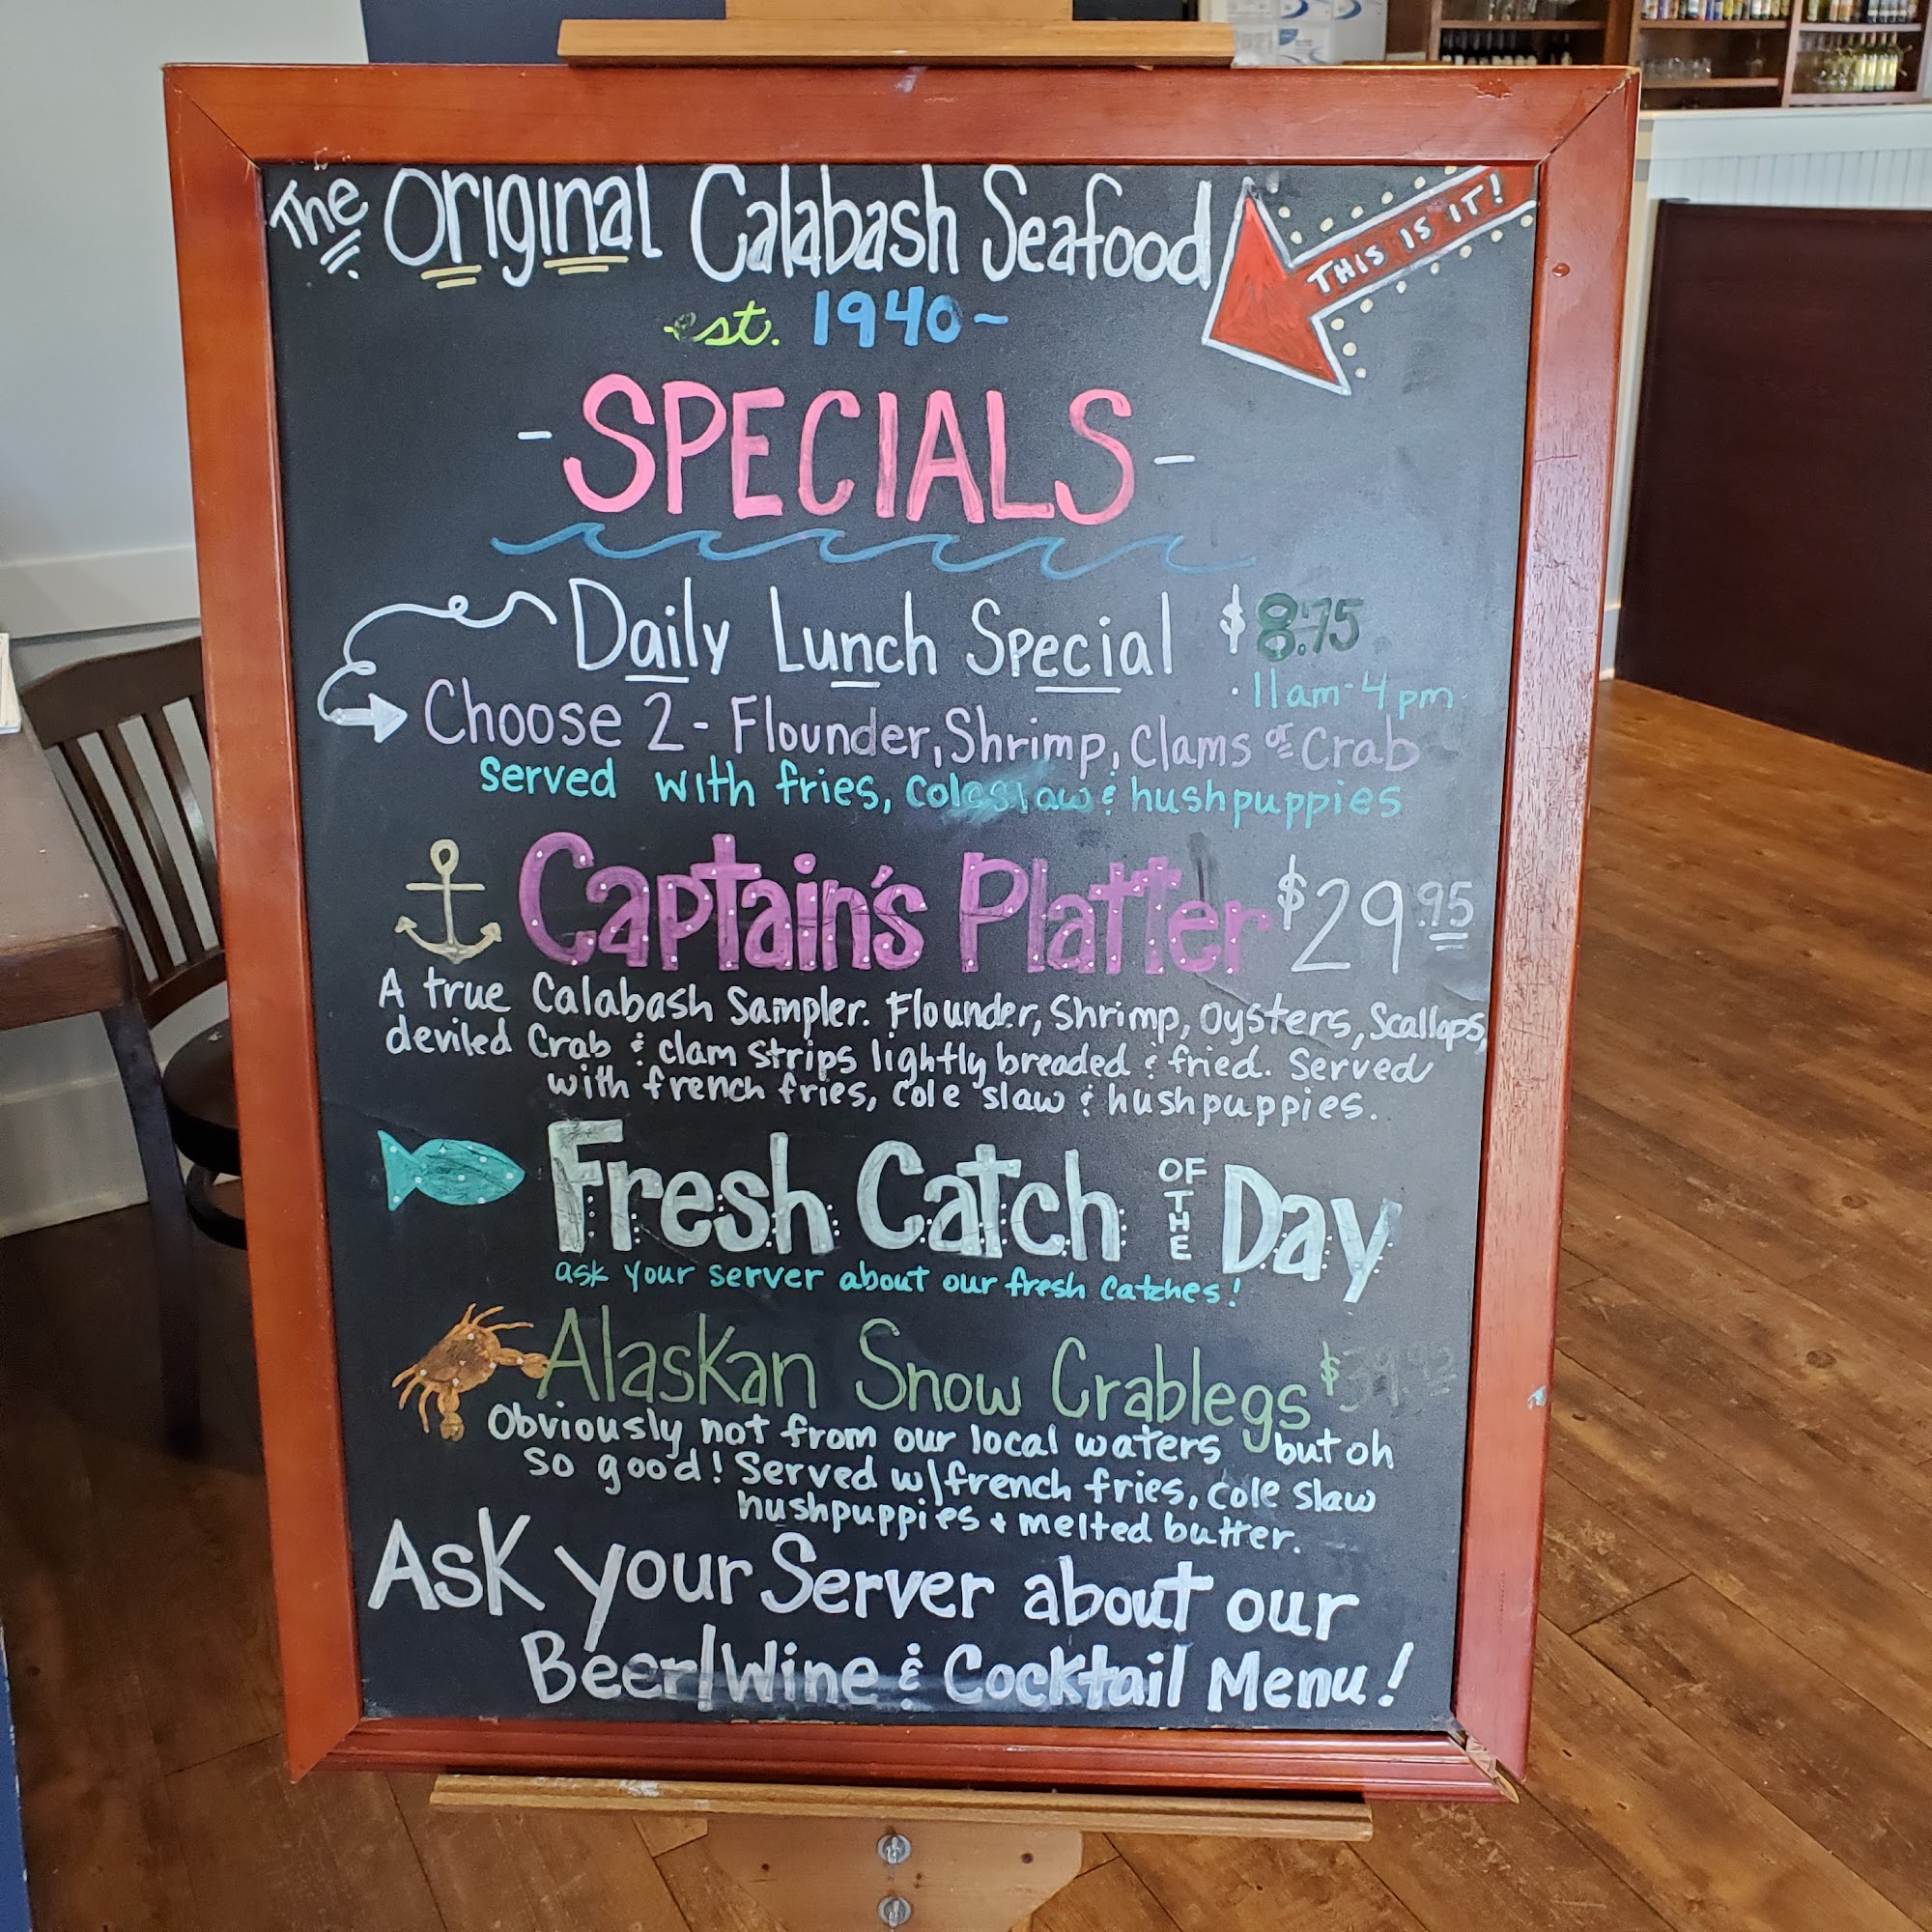 The Original Calabash Seafood
THIS IS IT!
est. 1940~
-SPECIALS-
Daily Lunch Special $8.75
11am-4pm
Choose 2 - Flounder, Shrimp, Clams or Crab
served with fries, coleslaw & hushpuppies
Captain's Platter $29.95
A true Calabash Sampler. Flounder, Shrimp, Oysters, Scallops,
deviled Crab & clam strips lightly breaded & fried. Served
with french fries, cole slaw & hushpuppies.
Fresh Catch OF THE Day
ask your server about our fresh catches!
Alaskan Snow Crablegs
Obviously not from our local waters but oh
so good! Served w/french fries, cole slaw
hushpuppies + melted butter.
Ask your Server about our
Beer/Wine & Cocktail Menu!